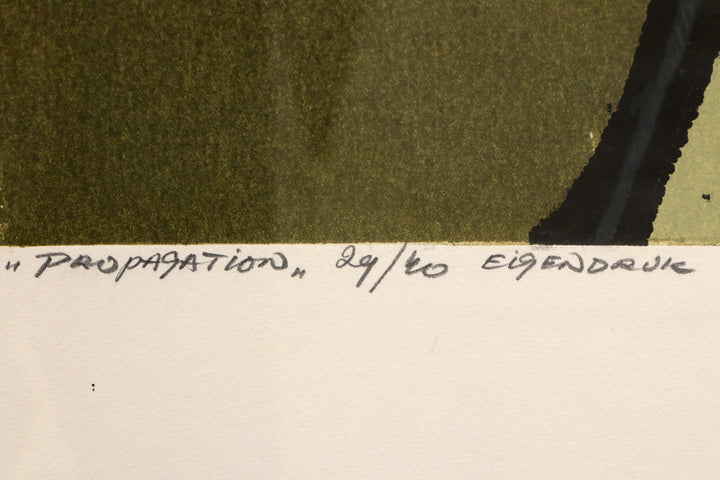 „PROPAGATION„ 29/40 EIGENDRUK